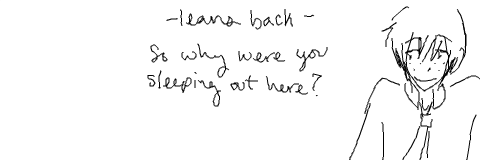 -leans back-
So why were you
sleeping out here?